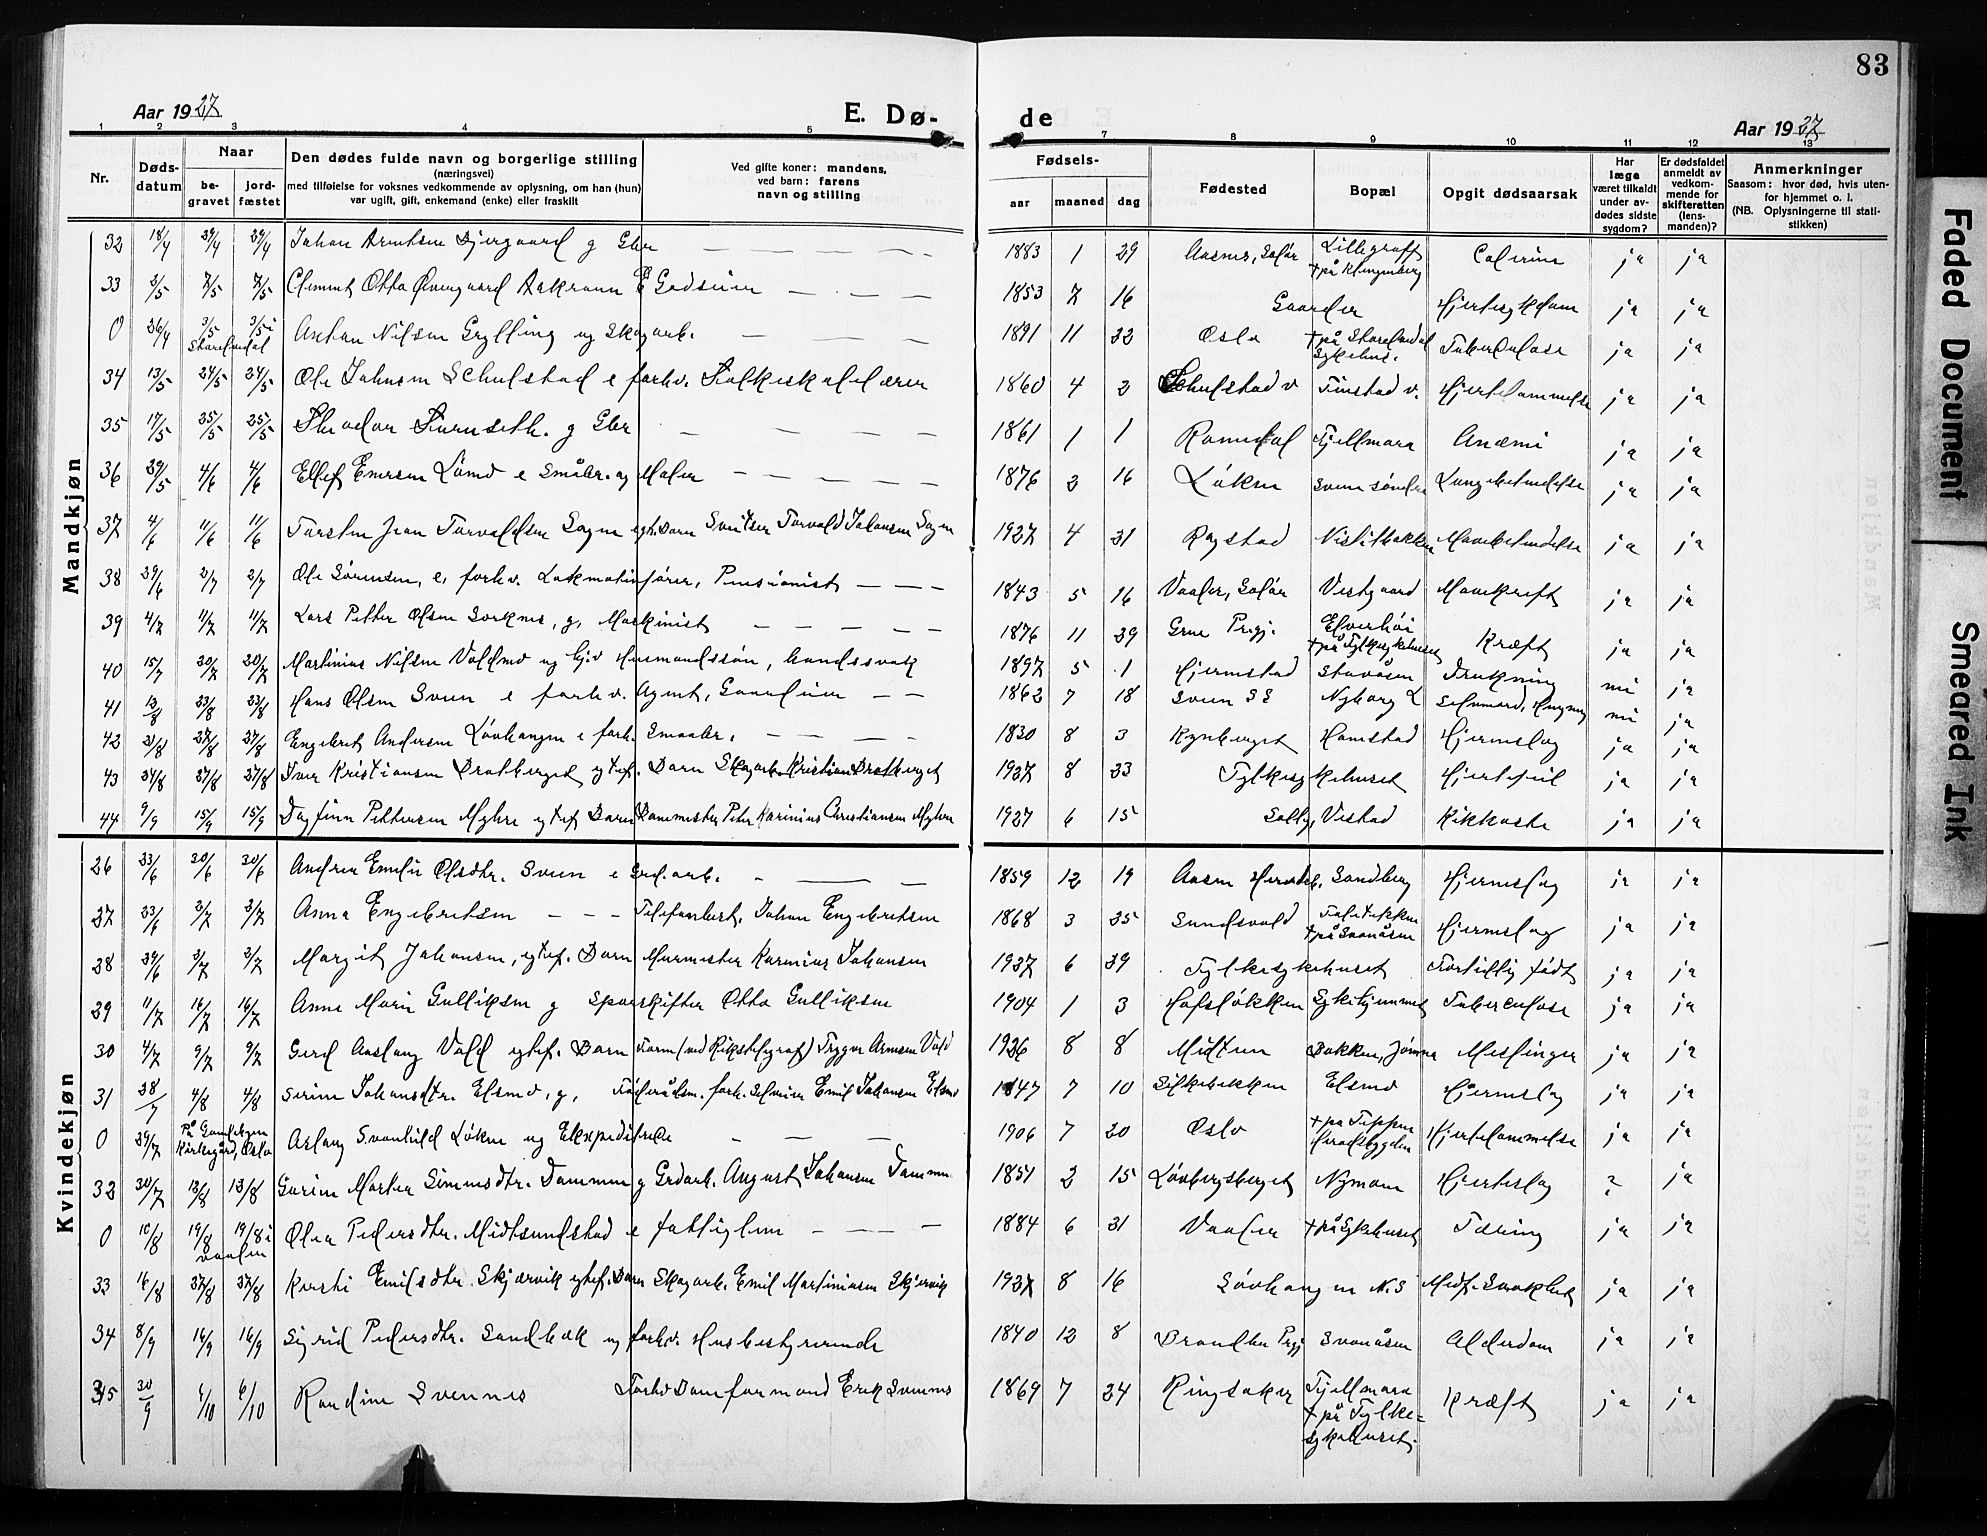 83
Aar 1927
E. Dø-
de
Aar 1927
1 2 3 4 5 7 8 9 10 11 12 13
Nr.
Døds-
datum
Naar
be-
gravet
jord-
fæstet
Den dødes fulde navn og borgerlige stilling
(næringsvei)
med tilføielse for voksnes vedkommende av oplysning, om han (hun)
var ugift, gift, enkemand (enke) eller fraskilt
Ved gifte koner: mandens,
ved barn: farens
navn og stilling
Fødsels-
aar
maaned
dag
Fødested
Bopæl
Opgit dødsaarsak
Har
læge
været tilkaldt
under av-
dødes sidste
sygdom?
Er dødsfaldet
anmeldt av
vedkom-
mende for
skifteretten
(lens-
manden)?
Anmerkninger
Saasom: hvor død, hvis uten-
for hjemmet o. l.
(NB. Oplysningerne til stati-
stikken)
Mandkjøn
32 18/4 29/4 29/4 Johan g Gbr 1883 1 29 Aasnes, Solør ja ja
33 2/5 7/5 7/5 Otto Øvergaard E 1853 7 16 Gaarder Hjertesykdom ja ja
0 26/4 3/5 3/5 i Anton Nilsen Grylling ug Skogarb. 1891 11 22 Oslo Tuberculose ja ja
34 13/5 24/5 24/5 Ole Johnsen Schulstad e forhv. Folkeskolelærer 1860 4 2 Schulstad v Finstad v. Hjertelammelse ja ja
35 17/5 25/5 25/5 Theodor g Gbr 1861 1 1 Romedal Fjellmora Anæmi ja ja
36 29/5 4/6 4/6 Ellef Lømo e Småbr. og Maler 1876 2 16 Løken Sveen søndre Lungebetendelse ja ja
37 4/6 11/6 11/6 Torsten Jean Torvaldsen Sogn egt. Barn Torvald Johansen Sogn 1927 4 21 Rogstad Mavebetendelse ja ja
38 29/6 2/7 2/7 Ole Sørensen, e, forhv. Lokomotivfører, Pensionist 1843 5 16 Vaaler, Solør Vestgaard Mavekreft ja ja
39 4/7 11/7 11/7 Lars Petter Olsen Sorknes, g, Maskinist 1876 11 29 Grue Prgj. Elverhøi
+ på Fylkesykehuset Kræft ja ja
40 15/7 20/7 20/7 Martinius Nilsen Voldmo ug Husmandssøn, 1897 5 1 Hjermstad Stavåsen Drukning nei ja
41 13/8 23/8 23/8 Hans Olsen Sveen e forhv. Agent, 1862 7 18 Sveen Nyborg nei ja
42 21/8 27/8 27/8 Engebret Andersen Løvhaugen e forh. Smaabr. 1830 8 3 Rynberget Hamstad Hjerneslag ja ja
43 24/8 27/8 27/8 Iver Kristiansen Bratberget egtef. Barn Skogarb. Kristian Bratberget 1927 8 23 Fylkesykehuset Hjertefeil ja ja
44 9/9 15/9 15/9 Dagfinn Pettersen Myhre egtef Barn Banemester Peter Karinius Christiansen Myhre 1927 6 15 Solby, Vestad Kikhoste ja ja
Kvindekjøn
26 23/6 30/6 30/6 Andrea Emilie Olsdtr. Sveen e Grd.arb. 1859 12 19 Sandberg Hjerneslag ja ja
27 23/6 2/7 2/7 Anna Engebretsen Telefonbest. Johan Engebretsen 1868 3 25 Sundsvold
+ på Svenåsen Hjerneslag ja ja
28 29/6 2/7 2/7 Margit Johansen, egtef. Barn Murmester Karinius Johansen 1927 6 29 Fylkesykehuset Fortidlig født ja ja
29 11/7 16/7 16/7 Anne Marie Gulliksen g Sporskifter Otto Gulliksen 1904 1 3 Hofsløkken Sykehjemmet Tuberculose ja ja
30 4/7 9/7 9/7 Gerd Aaslaug Vold egtef. Barn Form (ved Rikstelegraf) Trygve Arnesen Vold 1926 8 8 Midtun Bakken, Jømna Meslinger ja ja
31 28/7 4/8 4/8 Serine Johansdtr. Elsmo, g, Føderådsm. forh. Emil Johansen Elsmo 1847 7 10 Silkebekken Elsmo Hjerneslag ja ja
0 29/7 På Gamlebyen
Kirkegård, Oslo Aslaug Svanhild Løken ug Ekspeditrice 1906 7 20 Oslo + på Tippen
Heradsbygden Hjertelammelse ja ja
32 30/7 13/8 13/8 Gurine Marthea Simensdtr. Dammen g Grdarb. August Johansen Dammen 1851 2 15 Løvbergsberget Nymoen Hjerteslag ? ja
0 10/8 19/8 19/8 i
Vaaler Olea Pedersdtr. Midtsundstad e fattiglem 1884 6 21 Vaaler + på Sykehuset Tæring ja ja
33 16/8 27/8 27/8 Kirsti Emilsdtr. Skjærvik egtef. Barn Skogarb. Emil Martiniusen Skjervik 1927 8 16 Løvhaugen N.S Medf. Svakhet ja ja
34 8/9 16/9 16/9 Sigrid Pedersdtr. Sandbæk ug forhv. Husbestyrerinde 1840 12 8 Brandbu Prgj Svenåsen Alderdom ja ja
35 30/9 6/10 6/10 Randine Svennes Forhv Baneformand Erik Svennes 1869 7 24 Ringsaker Fjellmora
+ på Fylke-
sykehuset. Kræft ja ja
Faded Document
Smeared Ink